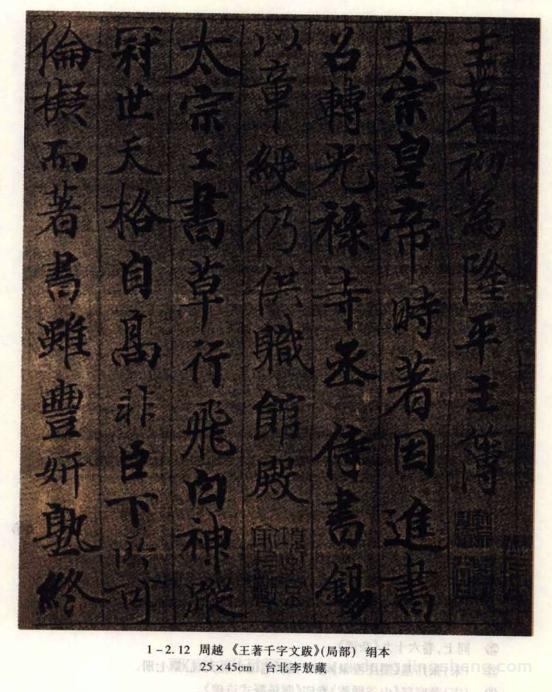 王著初為隆平主簿
太宗皇帝時著因進書
召轉光祿寺丞侍書錫
以章綬仍供職館殿
太宗工書草行飛白神蹤
冠世天格自高非臣下所可
倫擬而著書雖豐妍熟終
1-2.12 周越《王著千字文跋》(局部) 绢本
25×45cm 台北李敖藏